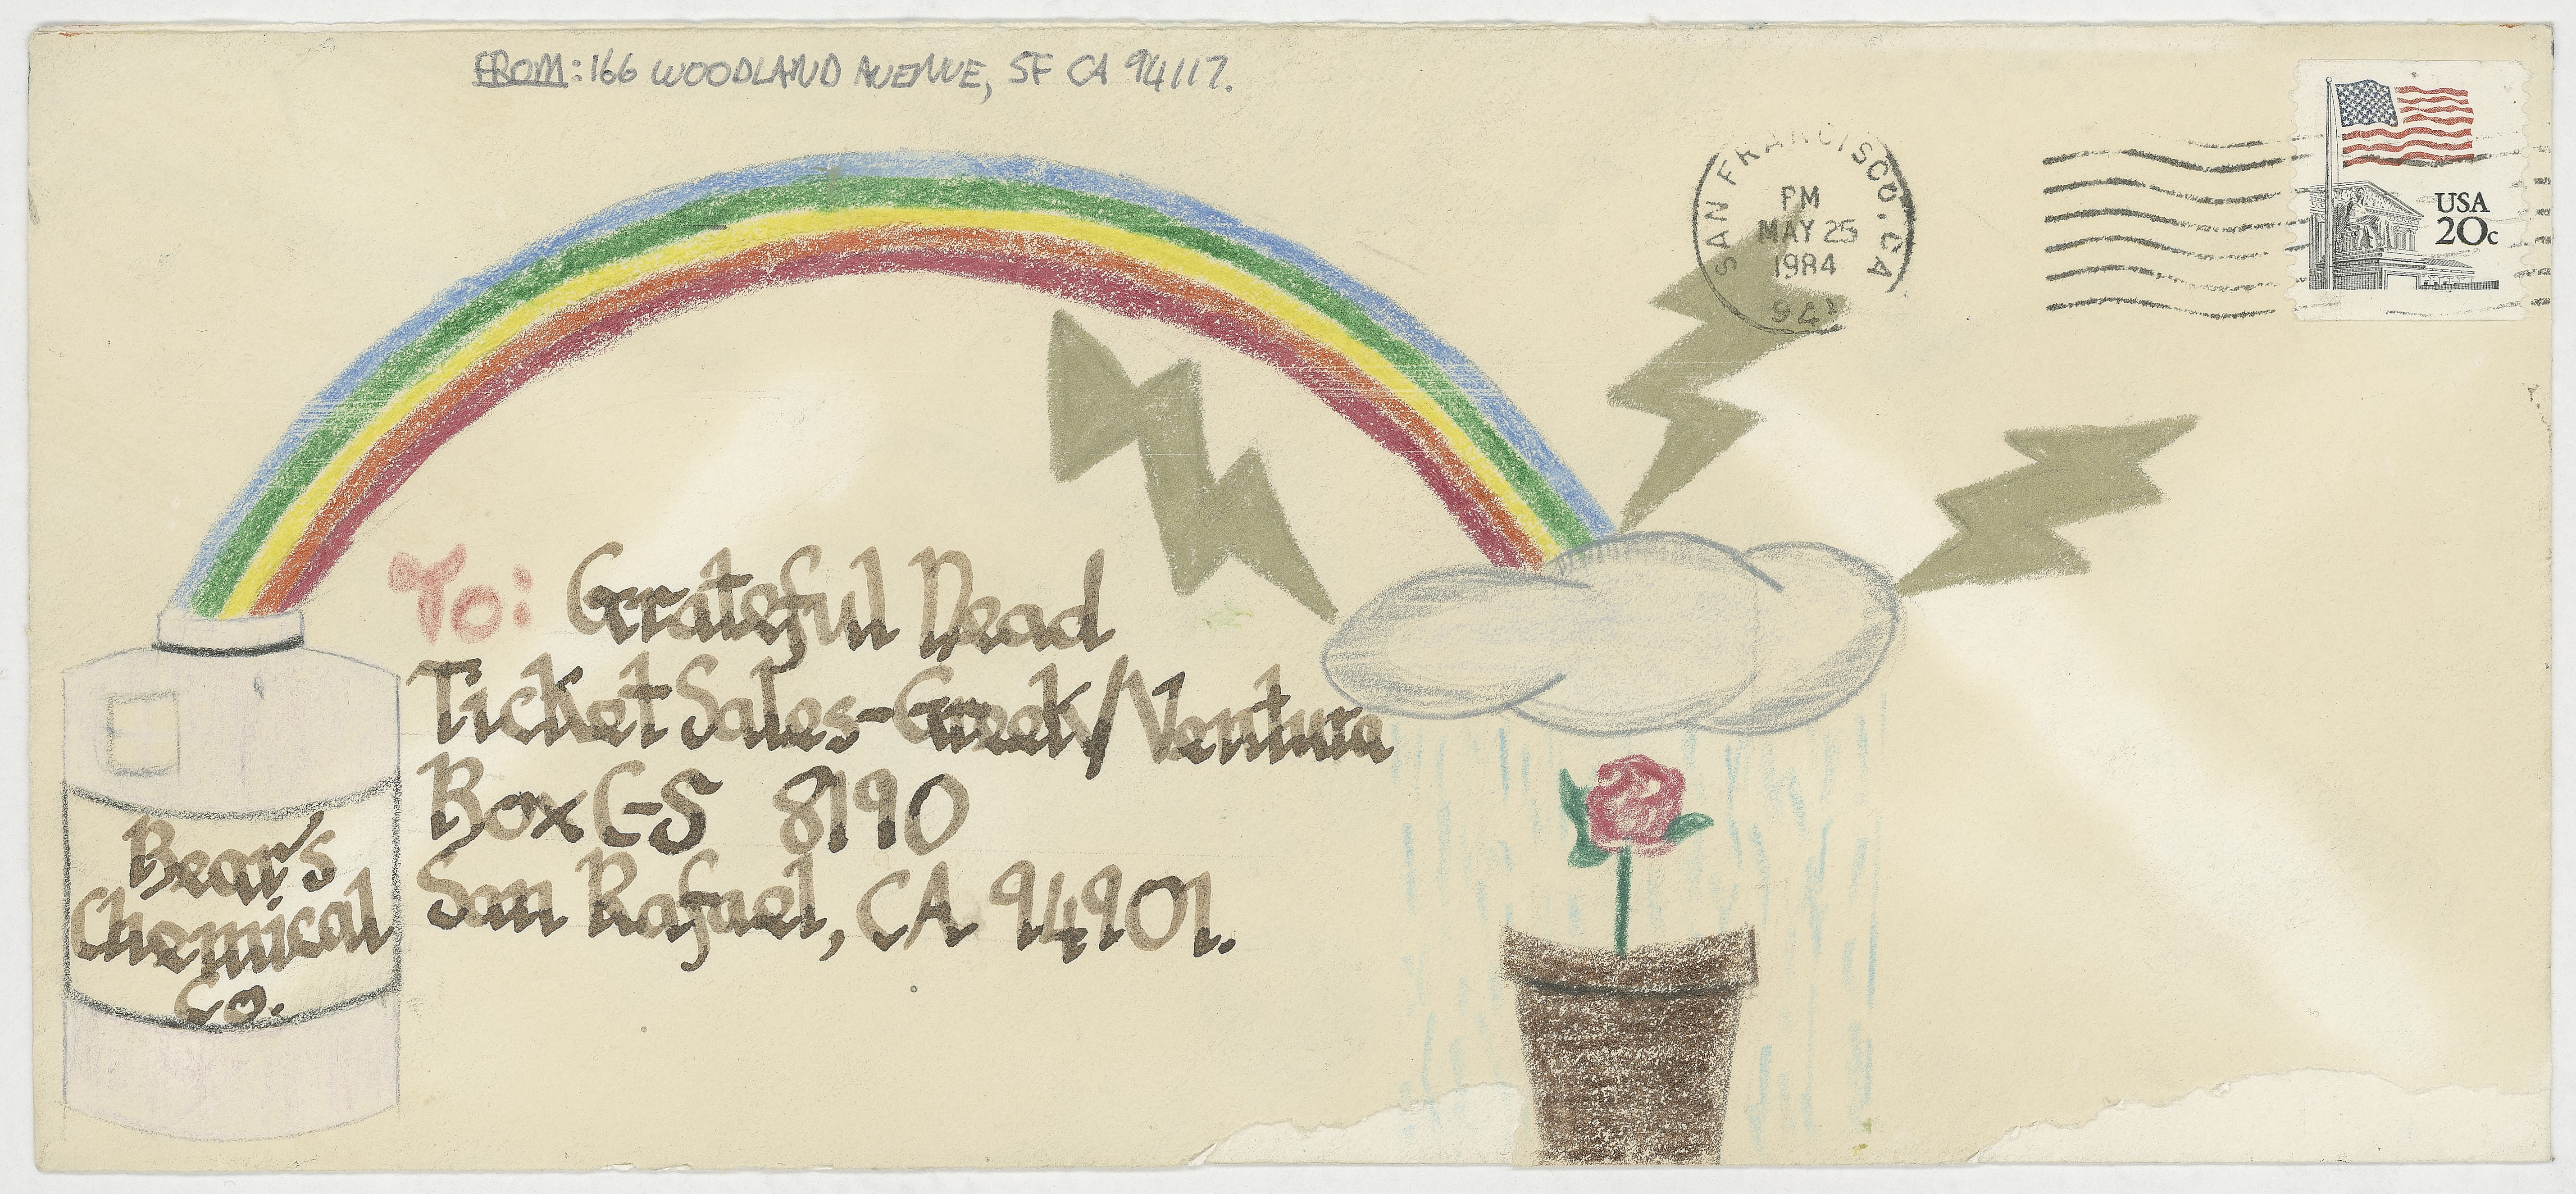 FROM: 166 WOODLAND AVENUE, SF CA 94117.
SAN FRANCISCO, CA
PM
MAY 25
1984
USA
20c
To: Grateful Dead
Ticket Sales-Greek/Ventura
Box C-S 8190
San Rafael, CA 94901.
Bear's
Chemical
Co.